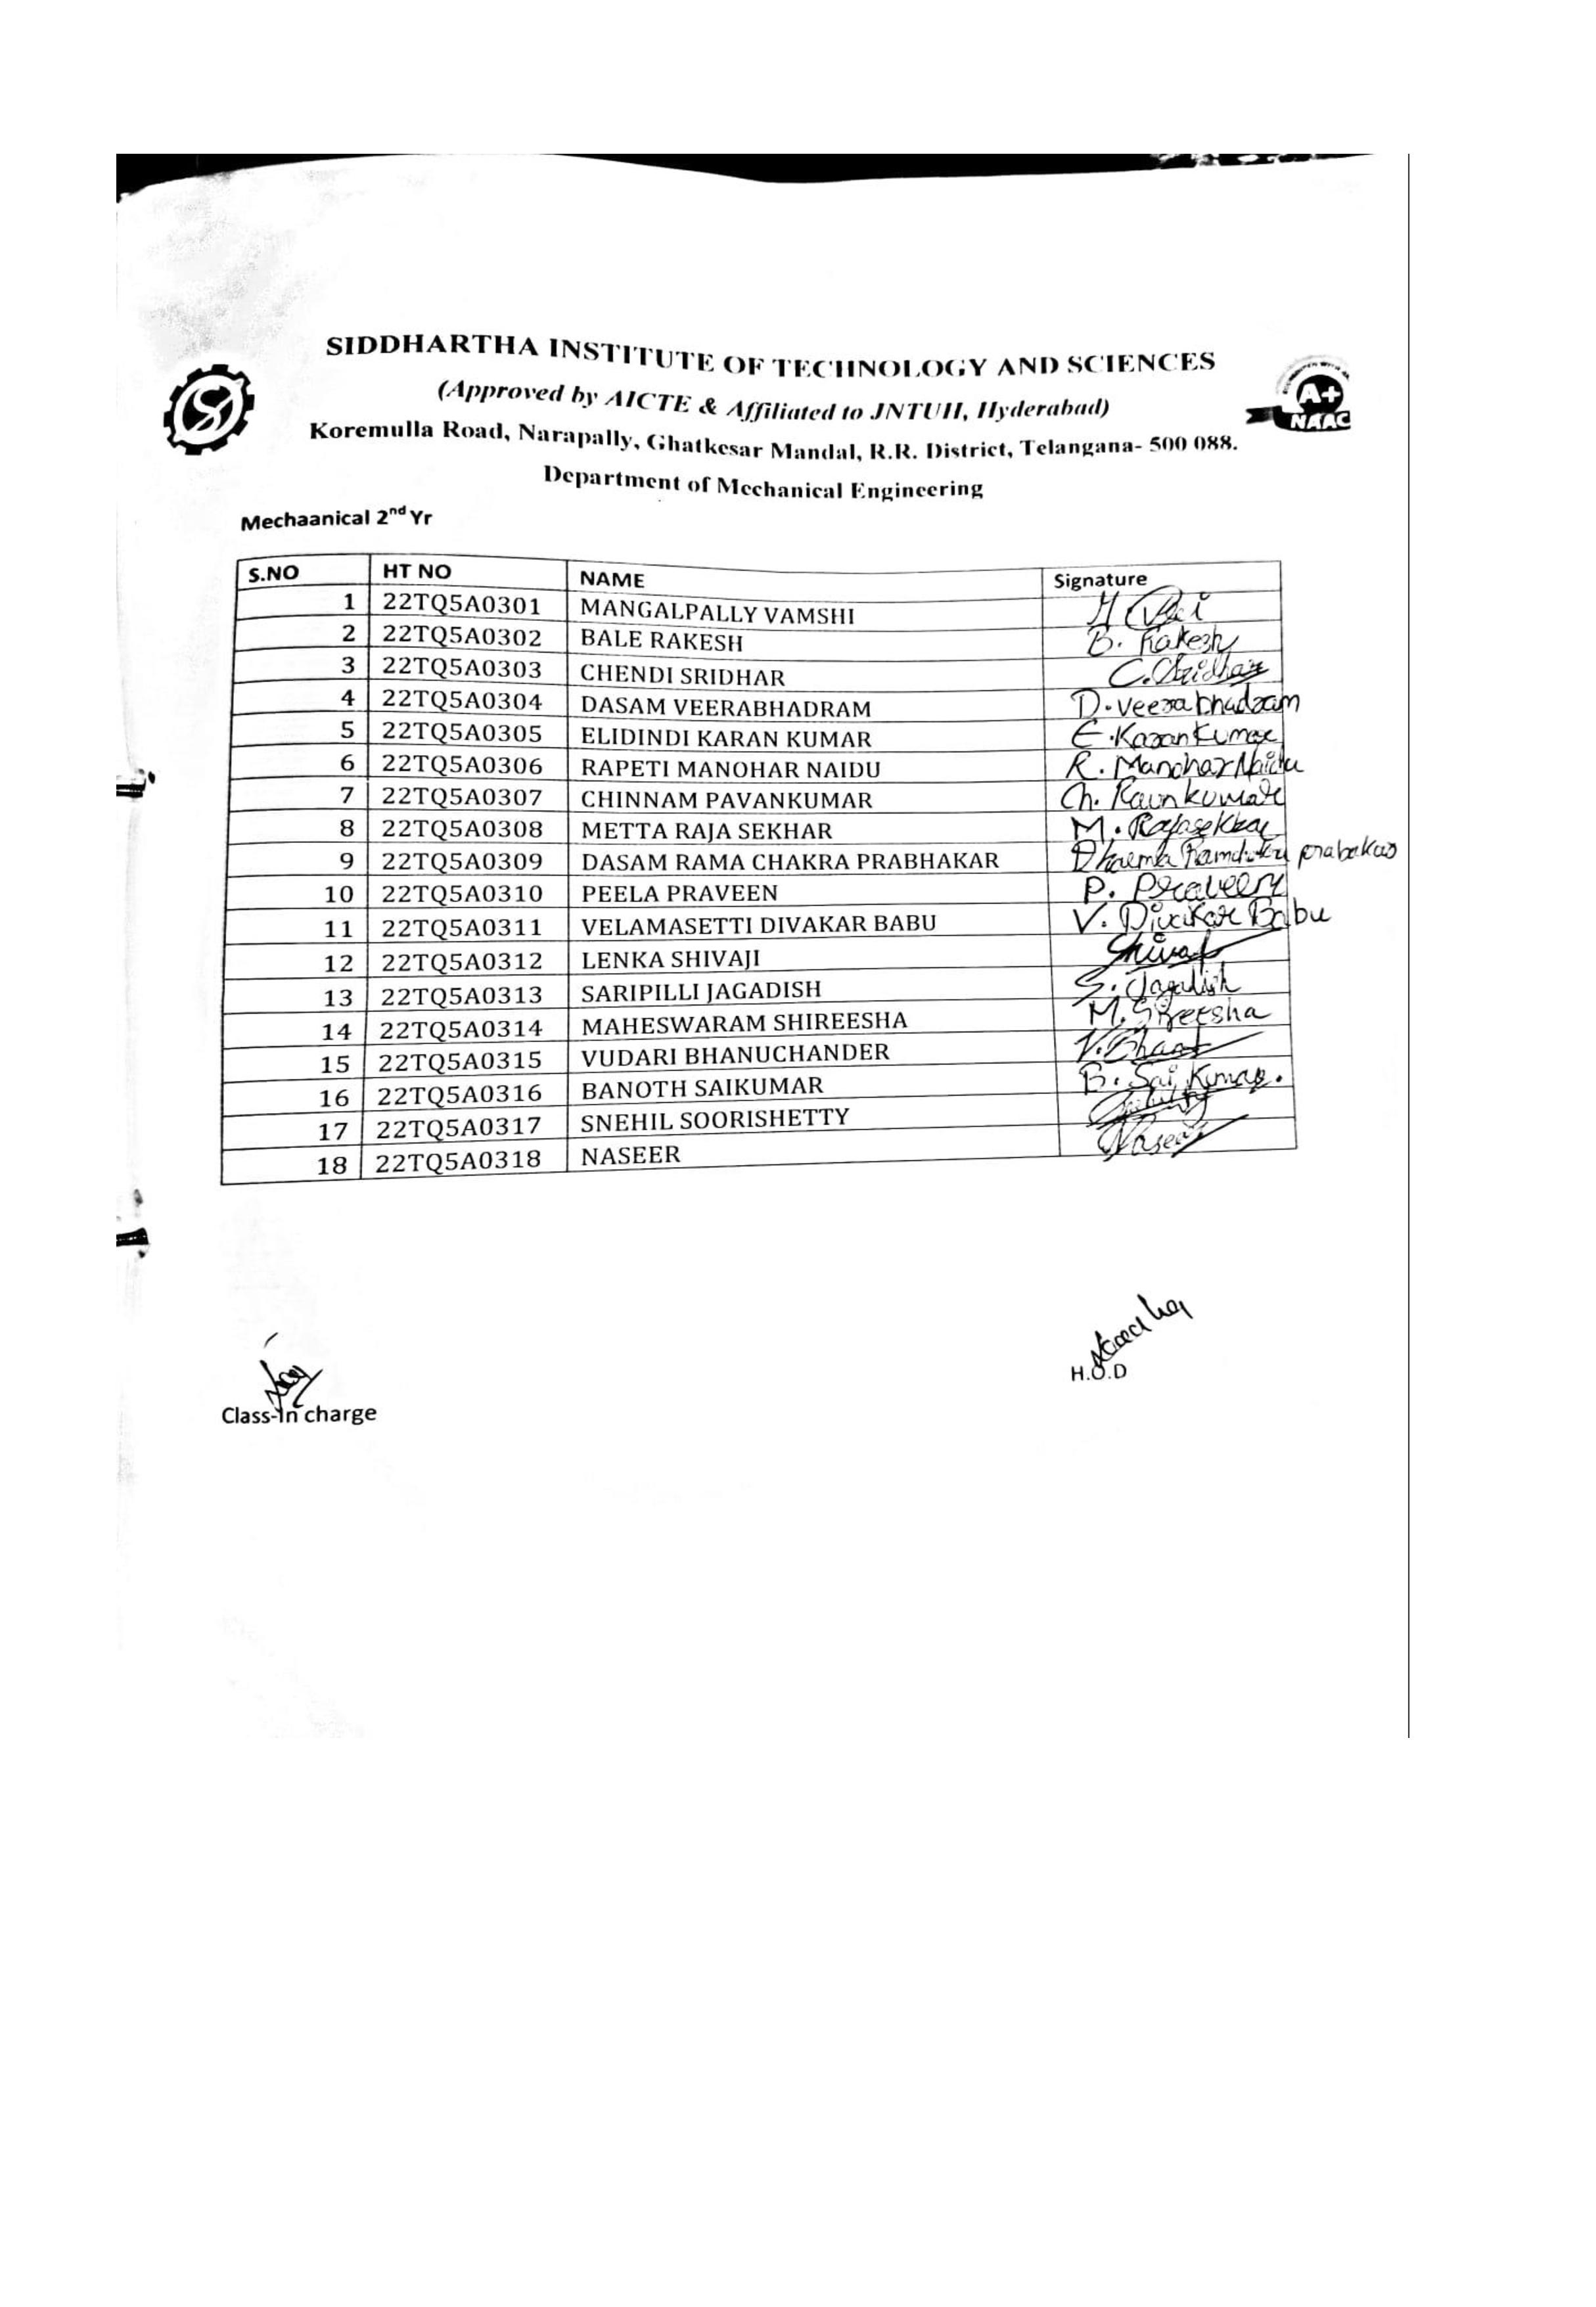 SIDDHARTHA INSTITUTE OF TECHNOLOGY AND SCIENCES
(Approved by AICTE & Affiliated to JNTUH, Hyderabad)
A+
NAAC
Koremulla Road, Narapally, Ghatkesar Mandal, R.R. District, Telangana- 500 088.
Department of Mechanical Engineering
Mechaanical 2nd Yr
S.NO HT NO NAME Signature
1 22TQ5A0301 MANGALPALLY VAMSHI
2 22TQ5A0302 BALE RAKESH B. Rakesh
3 22TQ5A0303 CHENDI SRIDHAR C. Sridhar
4 22TQ5A0304 DASAM VEERABHADRAM D. Veerabhadram
5 22TQ5A0305 ELIDINDI KARAN KUMAR E. Karan Kumar
6 22TQ5A0306 RAPETI MANOHAR NAIDU R. Manohar Naidu
7 22TQ5A0307 CHINNAM PAVANKUMAR Ch.
8 22TQ5A0308 METTA RAJA SEKHAR M.
9 22TQ5A0309 DASAM RAMA CHAKRA PRABHAKAR
10 22TQ5A0310 PEELA PRAVEEN P. Praveen
11 22TQ5A0311 VELAMASETTI DIVAKAR BABU V. Divakar Babu
12 22TQ5A0312 LENKA SHIVAJI
13 22TQ5A0313 SARIPILLI JAGADISH S. Jagadish
14 22TQ5A0314 MAHESWARAM SHIREESHA M. Shireesha
15 22TQ5A0315 VUDARI BHANUCHANDER
16 22TQ5A0316 BANOTH SAIKUMAR B. Sai Kumar.
17 22TQ5A0317 SNEHIL SOORISHETTY
18 22TQ5A0318 NASEER Naseer
H.O.D
Class-In charge